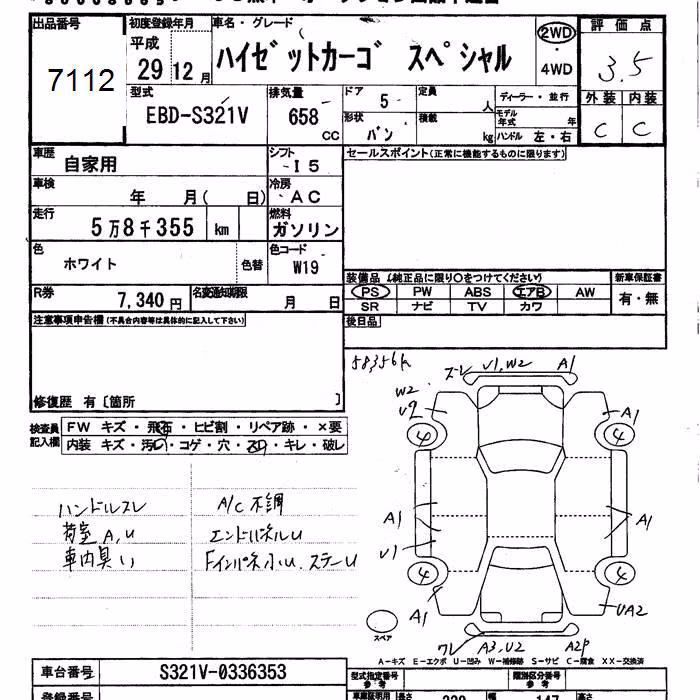 出品番号 初度登録年月 車名・グレード 評価点
7112
平成 29 12 月
ハイゼットカーゴ スペシャル
2WD
・
4WD
3.5
型式 排気量 ドア 定員 ディーラー・並行 外装 内装
EBD-S321V 658 CC 5 人
形状 積載 モデル年式 年 C C
バン kg ハンドル 左・右
車歴 シフト セールスポイント(正常に機能するものに限ります)
自家用 I5
車検 冷房
年 月( 日) AC
走行 燃料
5万8千355 km ガソリン
色 色コード
ホワイト 色替 W19
装備品 (純正品に限り○をつけてください) 新車保証書
R券 名変通知期限 PS PW ABS エアB AW 有・無
7,340円 月 日 SR ナビ TV カワ
注意事項申告欄(不具合内容等は具体的に記入して下さい) 後日品
58356k
修復歴 有〔箇所 〕
検査員記入欄 FW キズ・飛石・ヒビ割・リペア跡・×要
内装 キズ・汚れ・コゲ・穴・スレ・キレ・破レ
ハンドルスレ A/C不調
荷室A,U エンドパネルU
車内臭い FインパネルU.ステーU
ズレ U1,W2 A1
W2
U2 A1
4 4
A1 A1
U1
4 4
A1 UA2
スペア
ワレ A3,U2 A2P
A-キズ E-エクボ U-凹み W-補修跡 S-サビ C-腐食 XX-交換済
車台番号 S321V-0336353 型式指定番号 類別区分番号
登録番号 車庫証明用 長さ 幅 高さ